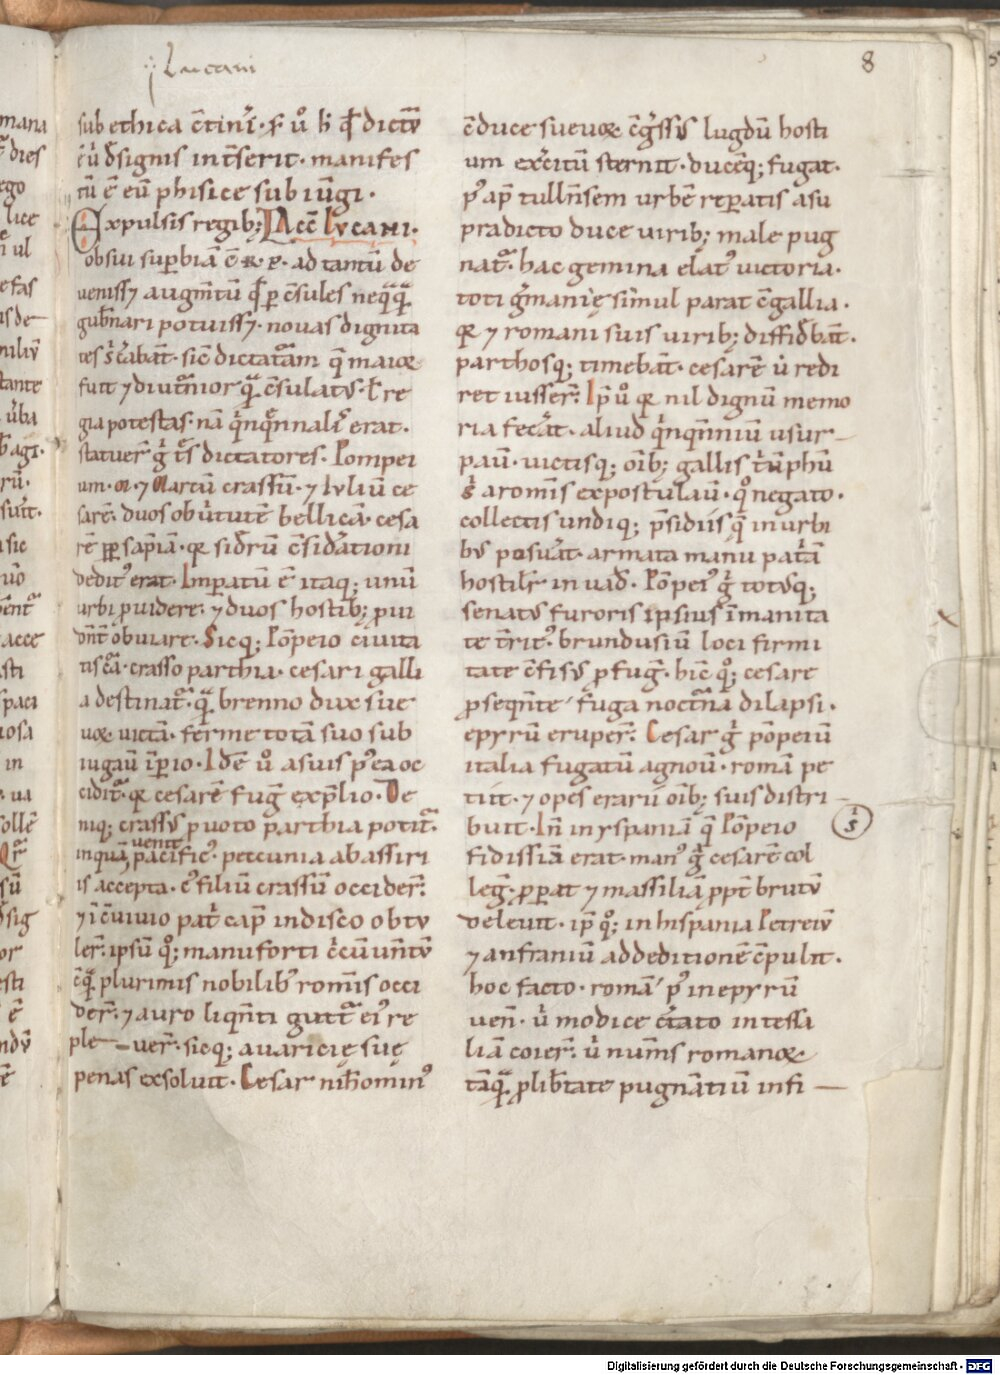 Lucani
8
sub ethica c̄tinet̄. s; ů h̄ qđ dictū
ē ꝟ dsignis int̄serit. manifes
tū ē eū phisice sub iūgi.
Expulsis regib; Acc̄ Lucani.
obsui sup̄biā ē R. P. ad tantū de
uenissꝫ augm̄tū qđ ꝑ c̄sules neqq̄ꝗ
gub̄nari potuissꝫ. nouas dignita
tes sc̄abant. sic̄ dictat̄am q̄ maioꝝ
fuit ⁊ diut̄nior quā c̄sulatus. ł re
gia potestas. nā qͥnqͤnnalis erat.
statuer̄ gͦ t̄s dictatores. Pompei
um. m. ⁊ Marcū crassū. ⁊ Iuliū ce
sarē. duos ob ůtutē bellicā. cesa
rē ꝓꝑ sapīā. qꝛ sidrū c̄sid̄ationi
deditꝰ erat. Imꝑatū ē itaq; unū
urbi ꝓuidere. ⁊ duos hostib; ꝓui
obuiare. Sicq; Pōpeio ciuita
crasso parthia. cesari galli
a destinat̄. quā brenno dux sue
uoꝝ uictā. ferme totā suo sub
iugauit īꝑio. Idē ů a suis pꝰea oc
ciditͬ. qꝛ cesarē fuḡ exp̄lio. De
niq; crassus ꝓ uoto parthia potit̄.
inquā uenit̄ pacificꝰ. peccunia ab assiri
is accepta. eꝰ filiū crassū occider̄.
⁊ ī c̄uiuio pat̄ cap̄ in disco obtu
ler̄. ipsū qͦ; manu forti c̄cūuēntū
cū plurimis nobilibꝰ romīs occi
der̄. ⁊ auro liqn̄ti guttͬ eiꝰ re
ple—uer̄. sicq; auaricię suę
penas exsoluit. Cesar nih̄ominꝰ
c̄duce sueuoꝝ c̄gssus lugdū hosti
um ex̄citū sternit. ducēq; fugat.
pꝰ ap̄ tulln̄sem urbē rep̄atis a su
pradicto duce uirib; male pug
nat̄. hac gemina elatꝰ uictoria.
toti gmanię simul parat c̄gallia.
qꝛ ⁊ romani suis uirib; diffidbāt.
parthosq; timebāt. cesarē ů redi
ret iusser̄. Ip̄ ů qꝛ nil dignū memo
ria fec̄at. aliud qͥnqͤnniū usur—
pauit. uictisq; oīb; gallis tͥūphū
sͥ a romīs expostulauit. qͦ negato.
collectis undiq; p̄sidiis q̄ in urbi
bus posuat. armata manu pat̄ā
hostilit̄ in uad. Pōpeiꝰ gͦ totusq;
senatus furoris ipsius īmanita
te t̄ritꝰ. brundusiū loci firmi
tate c̄fisus ꝓfuḡ. hīc qͦ; cesare
ꝓseqn̄te fuga noct̄na dilapsi.
epyrū eruper̄. Cesar gͦ pōpeiū
italia fugatū agnouit. romā pe
tiit. ⁊ opes erarii oīb; suis distri—
buit. In̄ in yspaniā q̄ Pōpeio
ṡ
fidissiā erat. manꝰ gͦ cesarē col
leḡ. ꝓꝑat ⁊ massiliā ꝓpt̄ brutū
deleuit. ip̄ qͦ; in hispania Petreiū
⁊ anfraniū ad deditionē c̄pulit.
hoc facto. romā pꝰ in epyrū
uen̄. ů modice c̄tato in tessa
liā coier̄. ů num̄s romanoꝝ
tāquā ꝓ lib̄tate pugnātiū infi—
Digitalisierung gefördert durch die Deutsche Forschungsgemeinschaft - DFG